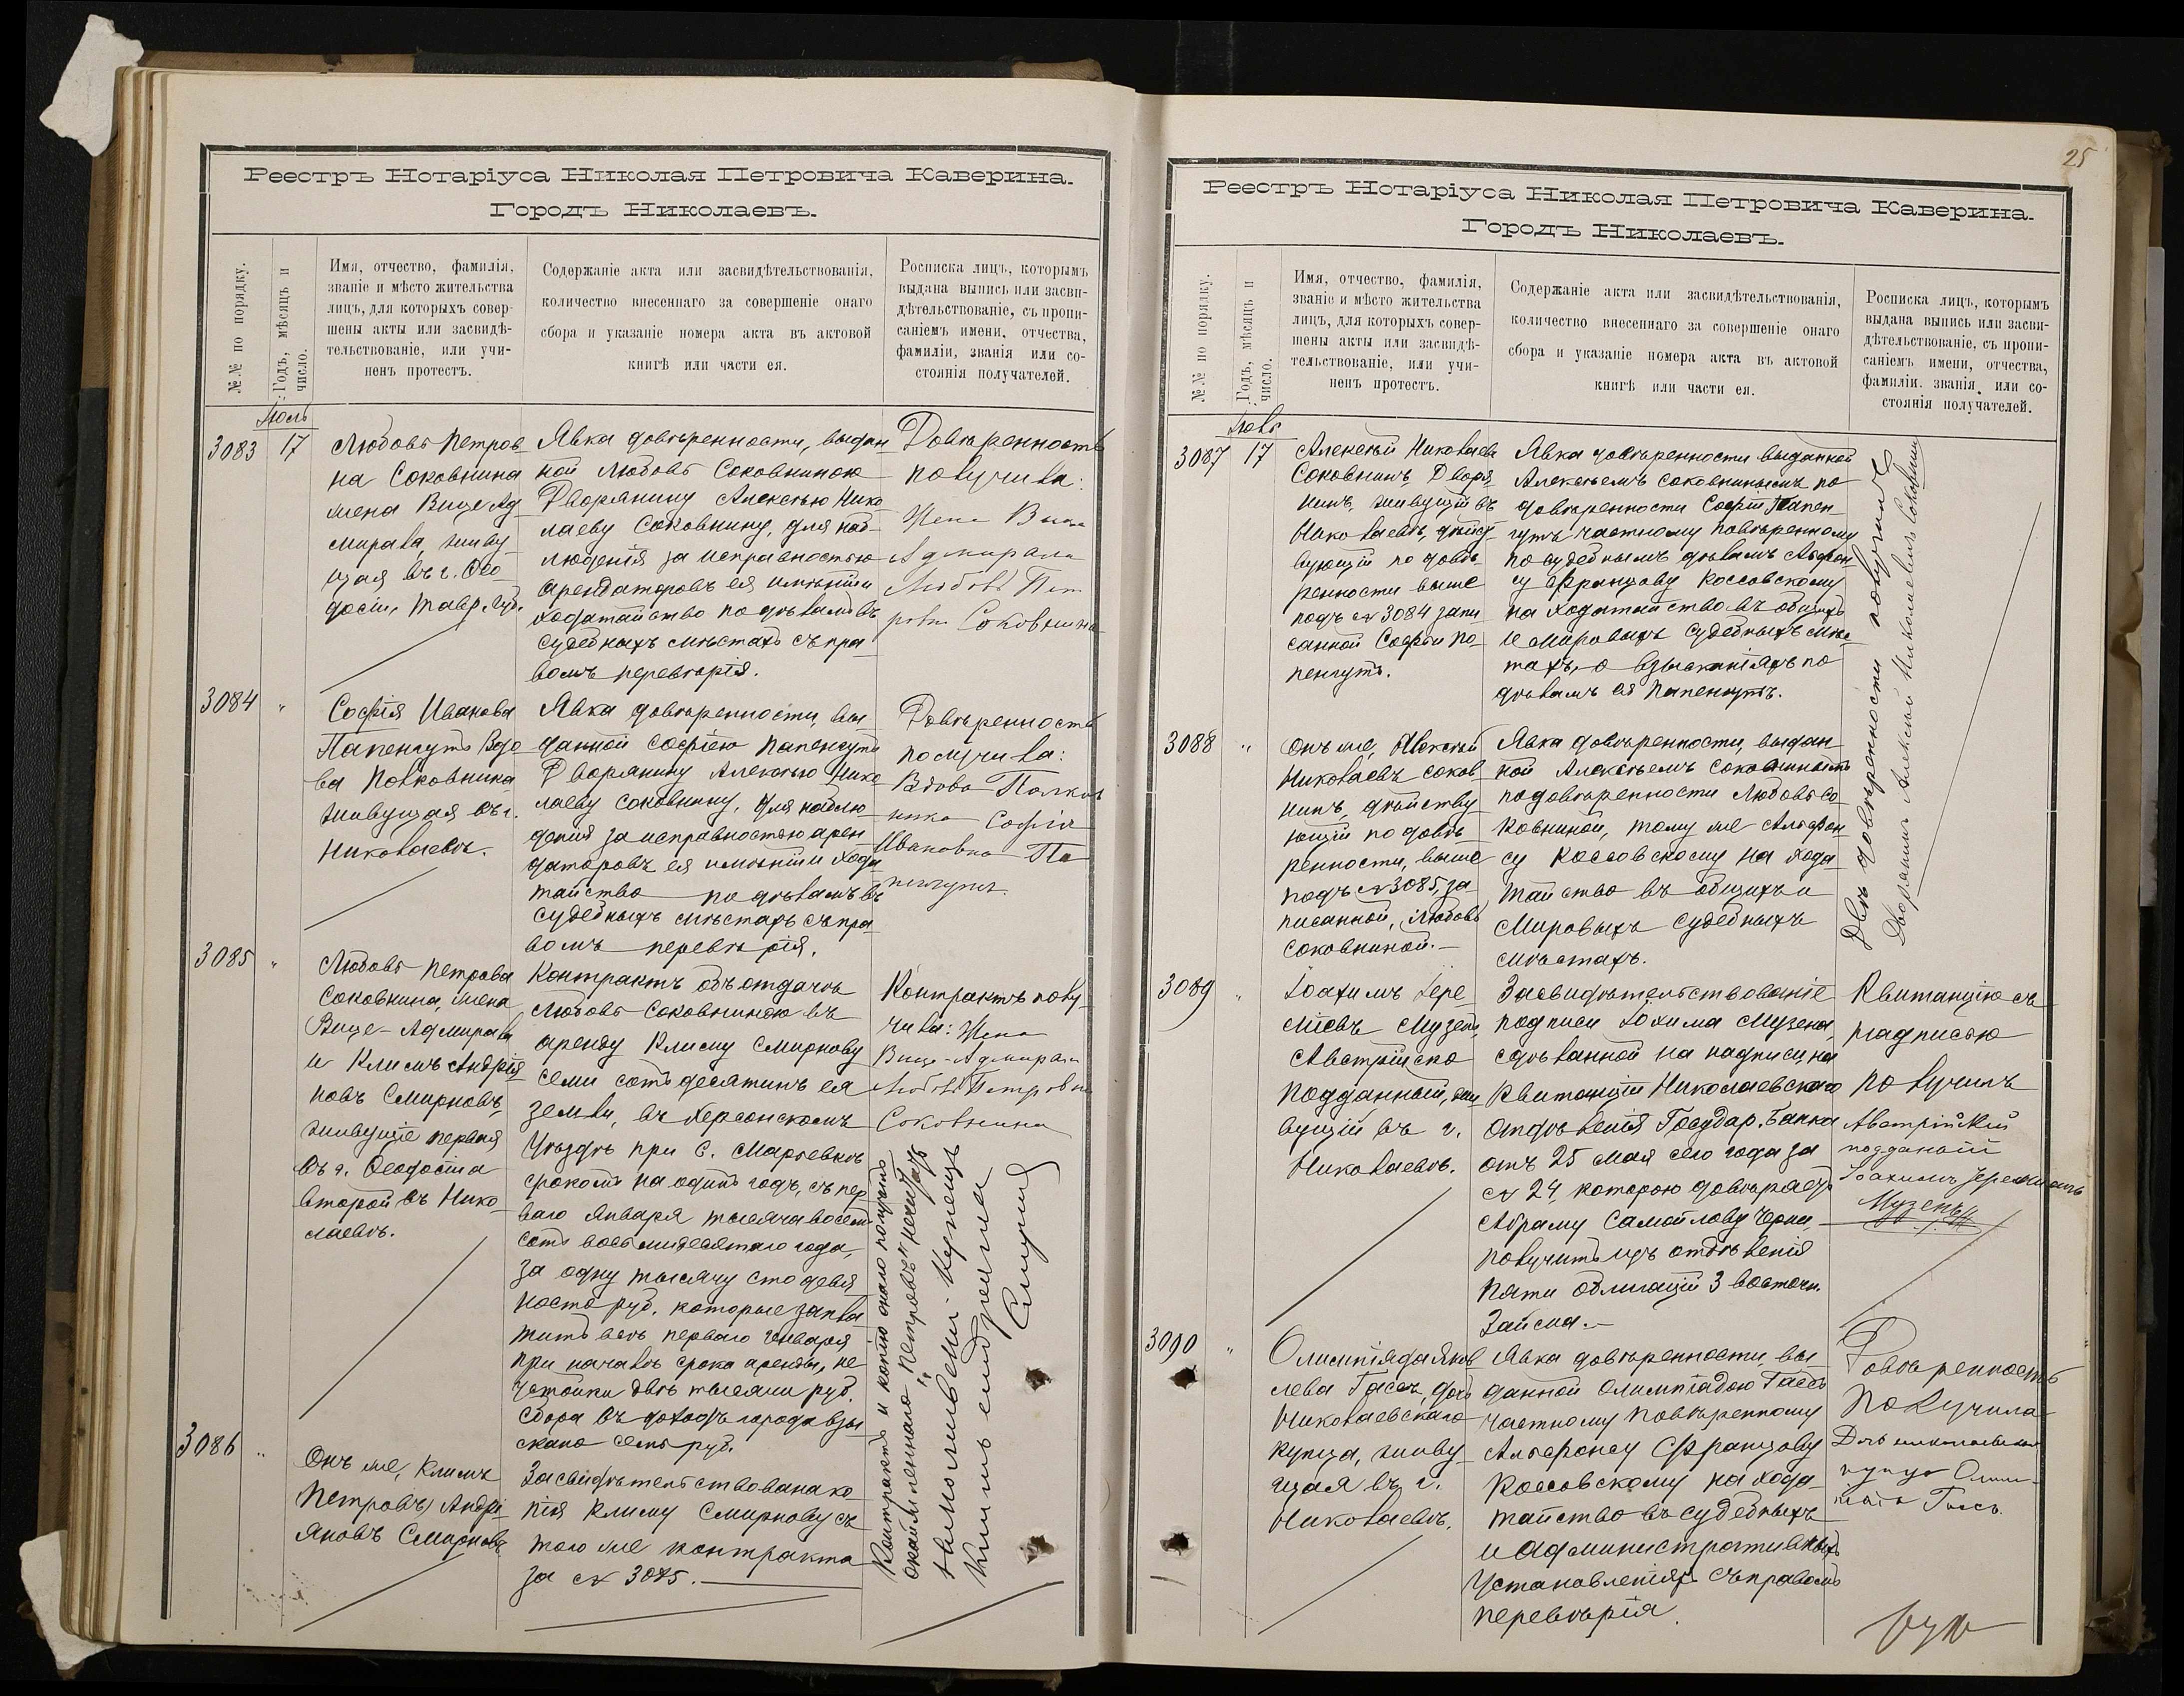 Реестръ Нотаріуса Николая Петровича Каверина.
Городъ Николаевъ.
№№ по порядку.
Годъ, мѣсяцъ и
число.
Имя, отчество, фамилія,
званіе и мѣсто жительства
лицъ, для которыхъ совер-
шены акты или засвидѣ-
тельствованіе, или учи-
ненъ протестъ.
Содержаніе акта или засвидѣтельствованія,
количество внесеннаго за совершеніе онаго
сбора и указаніе номера акта въ актовой
книгѣ или части ея.
Росписка лицъ, которымъ
выдана выпись или засви-
дѣтельствованіе, съ пропи-
саніемъ имени, отчества,
фамиліи, званія или со-
стоянія получателей.
Іюль
3083
17
Любовь Петров
на Соковнина
жена Вице Ад
мирала, живу
щая въ г. Ѳео
досіи, Тавр. Губ.
Явка довѣренности, выдан
ной Любовь Соковниною
Дворянину Алексѣю Нико
лаеву Соковнину, для наб-
люденія за исправностью
арендаторовъ ея имѣнія и
ходатайство по дѣламъ въ
судебныхъ мѣстахъ съ пра
вомъ перевѣрія.
Довѣренность
получила:
Жена Вице
Адмирала
Любовь Пет
ровна Соковнина
3084
"
Софія Иванова
Папенгутъ Вдо
ва Полковника
живущая въ г.
Николаевѣ.
Явка довѣренности, вы-
данной Софіею Папенгутъ
Дворянину Алексѣю Нико
лаеву Соковнину, для наблю
денія за исправностью арен
даторовъ ея имѣнія и хода
тайство по дѣламъ въ
судебныхъ мѣстахъ съ пра
вомъ перевѣрія.
Довѣренность
получила:
Вдова Полков
ника Софія
Ивановна Па
пенгутъ.
3085
"
Любовь Петрова
Соковнина, жена
Вице-Адмирала
и Климъ Андрія
новъ Смирновъ,
живущіе первая
въ г. Ѳеодосіи а
второй въ Нико
лаевѣ.
Контрактъ объ отдачѣ
Любовь Соковниною въ
аренду Климу Смирнову
семи сотъ десятинъ ея
земли, въ Херсонскомъ
Уѣздѣ при С. Марьевкѣ
срокомъ на одинъ годъ, съ пер
ваго Января тысяча восемь
сотъ восьмидесятаго года,
за одну тысячу сто девя
носто руб. которые запла
тить весь перваго Января
при началѣ срока аренды, не
устойки двѣ тысячи руб.
Сбора въ доходъ города взы
скано семь руб.
Контрактъ полу
чила: Жена
Вице-Адмирала
Любовь Петровна
Соковнина
Контрактъ и копію онаго получилъ
окаймленнаго "Петровъ" нечитать
3086
"
Онъ же, Климъ
Петровъ Андрі
яновъ Смирновъ
Засвидѣтельствована ко
пія Климу Смирнову съ
того же контракта
за № 3085.
25
Реестръ Нотаріуса Николая Петровича Каверина.
Городъ Николаевъ.
№№ по порядку.
Годъ, мѣсяцъ и
число.
Имя, отчество, фамилія,
званіе и мѣсто жительства
лицъ, для которыхъ совер-
шены акты или засвидѣ-
тельствованіе, или учи-
ненъ протестъ.
Содержаніе акта или засвидѣтельствованія,
количество внесеннаго за совершеніе онаго
сбора и указаніе номера акта въ актовой
книгѣ или части ея.
Росписка лицъ, которымъ
выдана выпись или засви-
дѣтельствованіе, съ пропи-
саніемъ имени, отчества,
фамиліи. званія или со-
стоянія получателей.
Іюль
3087
17
Алексѣй Николаевъ
Соковнинъ, Дворя
нинъ, живущій въ
Николаевѣ, дѣйст
вующій по довѣ
ренности выше
подъ № 3084 запи
санной Софіи Па-
пенгутъ.
Явка довѣренности выданной
Алексѣемъ Соковнинымъ по
довѣренности Софіи Папен
гутъ частному Повѣренному
по судебнымъ дѣламъ Альфон
су Францову Коссовскому
на ходатайство въ общихъ
и мировыхъ судебныхъ мѣс
тахъ, о взысканіяхъ по
дѣламъ ея Папенгутъ.
Двѣ довѣренности получилъ
Дворянинъ Алексѣй Николаевичъ Соковнинъ
3088
"
Онъ же, Алексѣй
Николаевъ Соков
нинъ, дѣйству
ющій по довѣ
ренности, выше
подъ № 3085, за
писанной, Любовь
Соковниной.
Явка довѣренности, выдан
ной Алексѣемъ Соковнинымъ
по довѣренности Любовь Со
ковниной, тому же Альфон
су Коссовскому на хода
тайство въ общихъ и
Мировыхъ судебныхъ
мѣстахъ.
3089
"
Іоахимъ Іере
міевъ Музенъ
Австрійско
подданный, жи
вущій въ г.
Николаевѣ.
Засвидѣтельствованіе
подписи Іохима Музена,
сдѣланной на надписи, на
Квитанціи Николаевскаго
отдѣленія Государ. Банка
отъ 25 Мая сего года за
№ 24 которою довѣряетъ
Абраму Самойлову Черня
получить изъ отдѣленія
пяти облигацій 3 восточн.
Займа.
Квитанцію съ
надписью
получилъ
Австрійскій
подданый
Музенъ
3090
"
Олимпіада Яков
лева Гаевъ, дочь
Николаевскаго
купца, живу
щая въ г.
Николаевѣ.
Явка довѣренности, вы
данной Олимпіадою Гаевъ
частному повѣренному
Альфонсу Францову
Коссовскому на хода
тайство въ судебныхъ
и административныхъ
установленіяхъ съ правомъ
перевѣрія.
Довѣренность
получила
Дочь николаевскаго
купца Олим